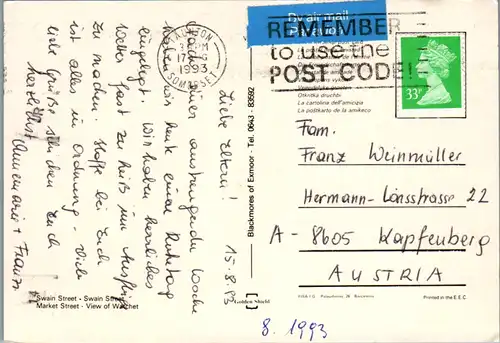 15.8.93
Liebe Eltern!
Nach einer anstrengenden Woche
haben wir heute einen Ruhetag
eingelegt. Wir haben herrliches
Wetter fast zu heiß um Ausflüge
zu machen. Hoffe bei Euch
ist alles in Ordnung. Viele
liebe Grüße schicken Euch
herzlichst
Annemarie + Franz
Swain Street • Swain Street
Market Street • View of Watchet
Blackmores of Exmoor - Tel. 0643 - 83592
Golden Shield
TAUNTON
1993
SOMERSET
By air mail
Par avion
REMEMBER
to use the
POST CODE!
33
Otkritka druzhbi
La cartolina dell'amicizia
La poŝtkarto de la amikeco
Fam.
Franz Weinmüller
Hermann-Lönsstrasse 22
A - 8605 Kapfenberg
AUSTRIA
Printed in the E.E.C
8. 1993